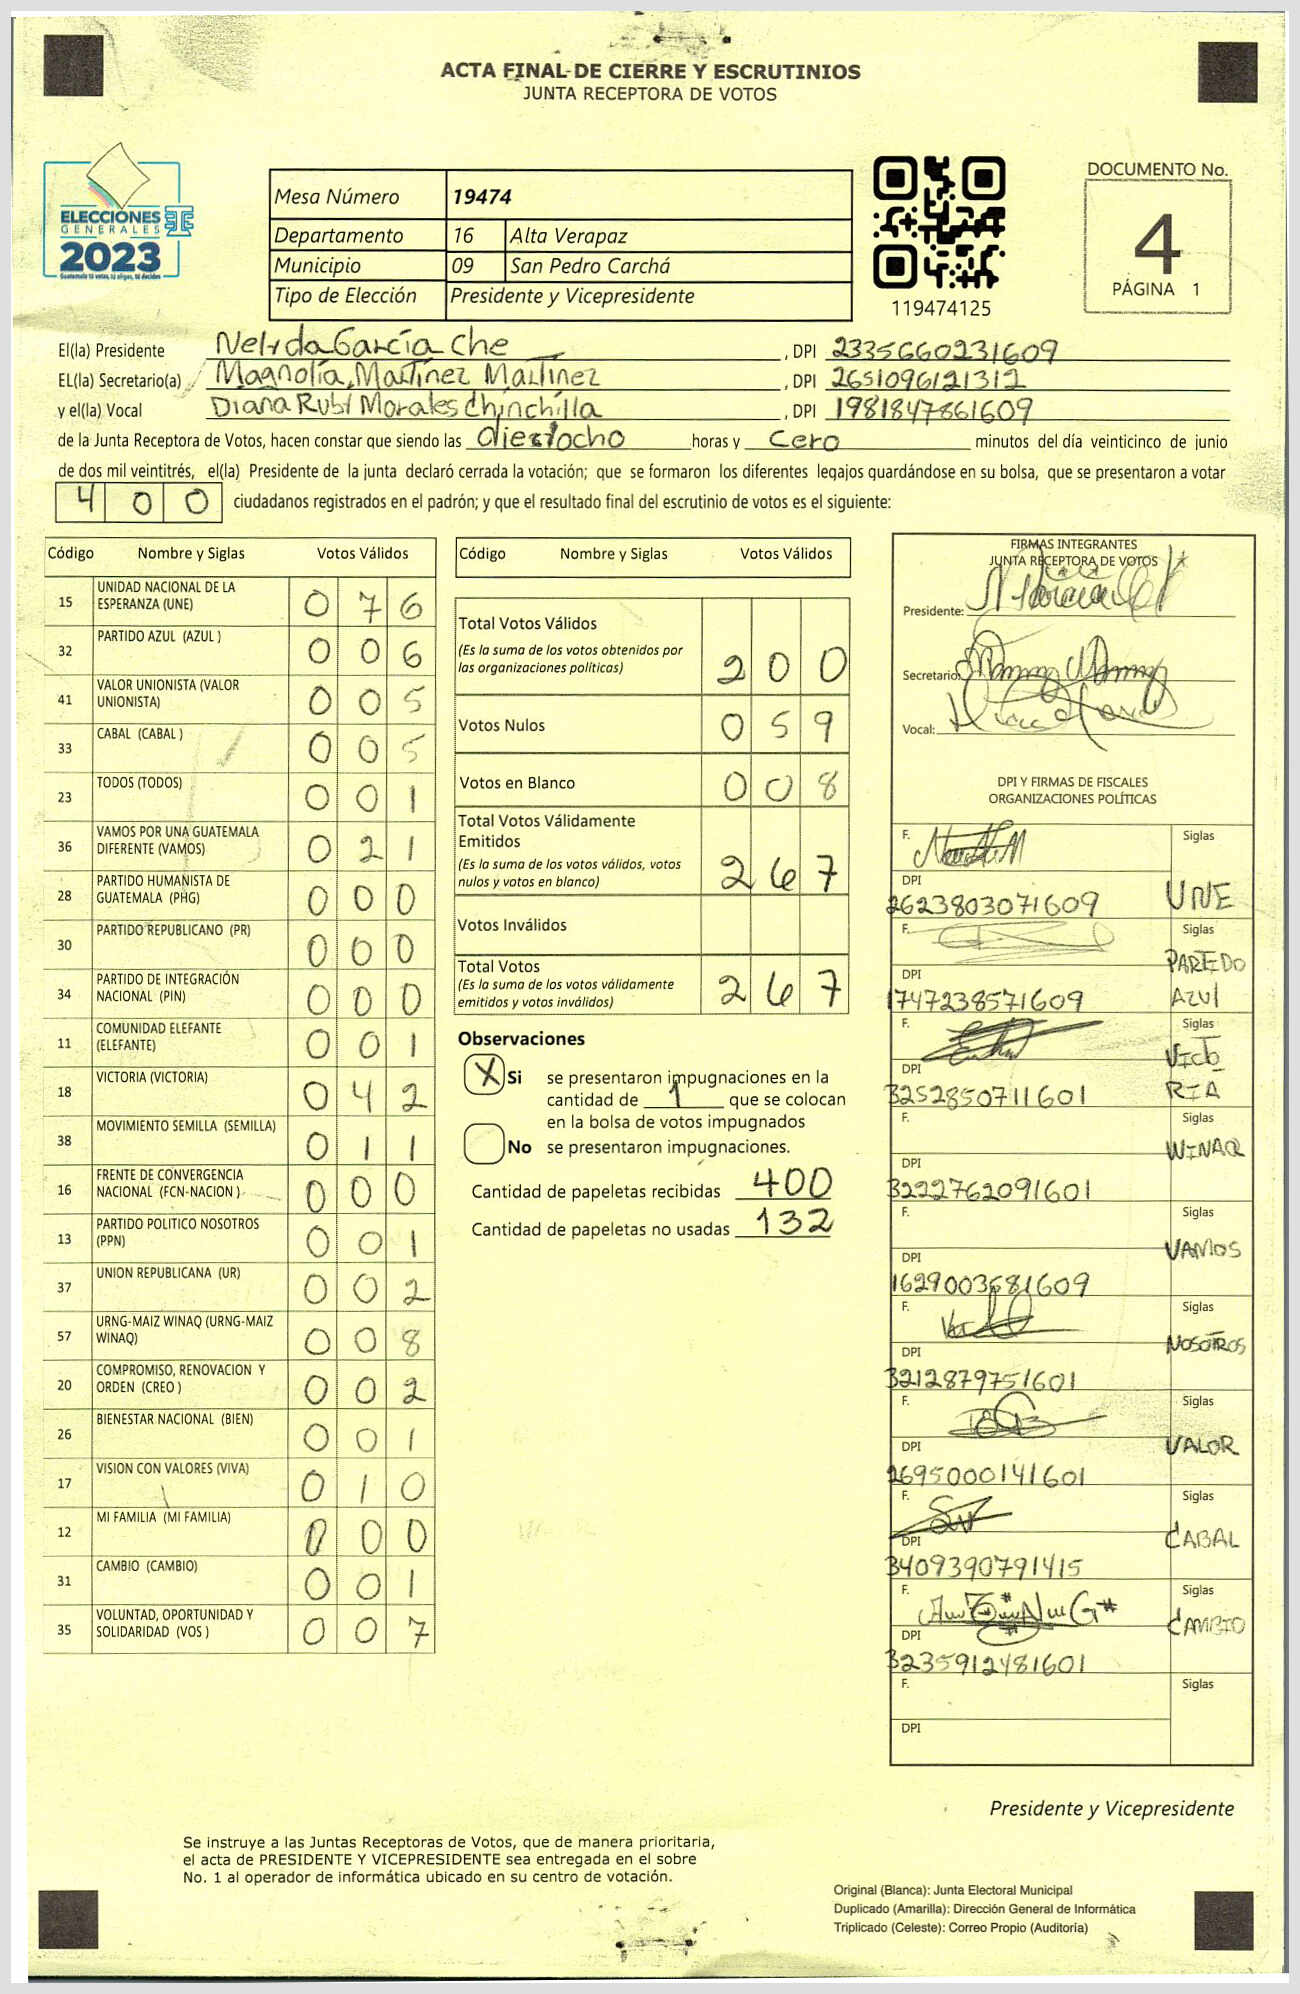 ACTA FINAL DE CIERRE Y ESCRUTINIOS
JUNTA RECEPTORA DE VOTOS
ELECCIONES
GENERALES
2023
Guatemala tú votas, tú eliges, tú decides
Mesa Número 19474
Departamento 16 Alta Verapaz
Municipio 09 San Pedro Carchá
Tipo de Elección Presidente y Vicepresidente
119474125
DOCUMENTO No.
4
PÁGINA 1
El(la) Presidente Nelyda García Che , DPI 2335660231609
EL(la) Secretario(a) Magnolia Martínez Martínez , DPI 2651096121312
y el(la) Vocal Diana Ruby Morales Chinchilla , DPI 1981847861609
de la Junta Receptora de Votos, hacen constar que siendo las dieciocho horas y cero minutos del día veinticinco de junio
de dos mil veintitrés, el(la) Presidente de la junta declaró cerrada la votación; que se formaron los diferentes legajos guardándose en su bolsa, que se presentaron a votar
400 ciudadanos registrados en el padrón; y que el resultado final del escrutinio de votos es el siguiente:
Código Nombre y Siglas Votos Válidos
15 UNIDAD NACIONAL DE LA ESPERANZA (UNE) 076
32 PARTIDO AZUL (AZUL ) 006
41 VALOR UNIONISTA (VALOR UNIONISTA) 005
33 CABAL (CABAL ) 005
23 TODOS (TODOS) 001
36 VAMOS POR UNA GUATEMALA DIFERENTE (VAMOS) 021
28 PARTIDO HUMANISTA DE GUATEMALA (PHG) 000
30 PARTIDO REPUBLICANO (PR) 000
34 PARTIDO DE INTEGRACIÓN NACIONAL (PIN) 000
11 COMUNIDAD ELEFANTE (ELEFANTE) 001
18 VICTORIA (VICTORIA) 042
38 MOVIMIENTO SEMILLA (SEMILLA) 011
16 FRENTE DE CONVERGENCIA NACIONAL (FCN-NACION ) 000
13 PARTIDO POLITICO NOSOTROS (PPN) 001
37 UNION REPUBLICANA (UR) 002
57 URNG-MAIZ WINAQ (URNG-MAIZ WINAQ) 008
20 COMPROMISO, RENOVACION Y ORDEN (CREO ) 002
26 BIENESTAR NACIONAL (BIEN) 001
17 VISION CON VALORES (VIVA) 010
12 MI FAMILIA (MI FAMILIA) 000
31 CAMBIO (CAMBIO) 001
35 VOLUNTAD, OPORTUNIDAD Y SOLIDARIDAD (VOS ) 007
Código Nombre y Siglas Votos Válidos
Total Votos Válidos
(Es la suma de los votos obtenidos por
las organizaciones políticas) 200
Votos Nulos 059
Votos en Blanco 008
Total Votos Válidamente
Emitidos
(Es la suma de los votos válidos, votos
nulos y votos en blanco) 267
Votos Inválidos
Total Votos
(Es la suma de los votos válidamente
emitidos y votos inválidos) 267
Observaciones
X Si se presentaron impugnaciones en la
cantidad de 1 que se colocan
en la bolsa de votos impugnados
No se presentaron impugnaciones.
Cantidad de papeletas recibidas 400
Cantidad de papeletas no usadas 132
FIRMAS INTEGRANTES
JUNTA RECEPTORA DE VOTOS
Presidente:
Secretario:
Vocal:
DPI Y FIRMAS DE FISCALES
ORGANIZACIONES POLÍTICAS
F. Siglas
DPI UNE
2623803071609
F. Siglas
PAREDO
DPI AZUl
1747238571609
F. Siglas
Victo
DPI RIA
3252850711601
F. Siglas
DPI WINAQ
3222762091601
F. Siglas
DPI VAMOS
1629003681609
F. Siglas
DPI NOSOTROS
3212879751601
F. Siglas
DPI VALOR
2695000141601
F. Siglas
DPI CABAL
3409390791415
F. Siglas
DPI CAMBIO
3235912481601
F. Siglas
DPI
Presidente y Vicepresidente
Se instruye a las Juntas Receptoras de Votos, que de manera prioritaria,
el acta de PRESIDENTE Y VICEPRESIDENTE sea entregada en el sobre
No. 1 al operador de informática ubicado en su centro de votación.
Original (Blanca): Junta Electoral Municipal
Duplicado (Amarilla): Dirección General de Informática
Triplicado (Celeste): Correo Propio (Auditoría)